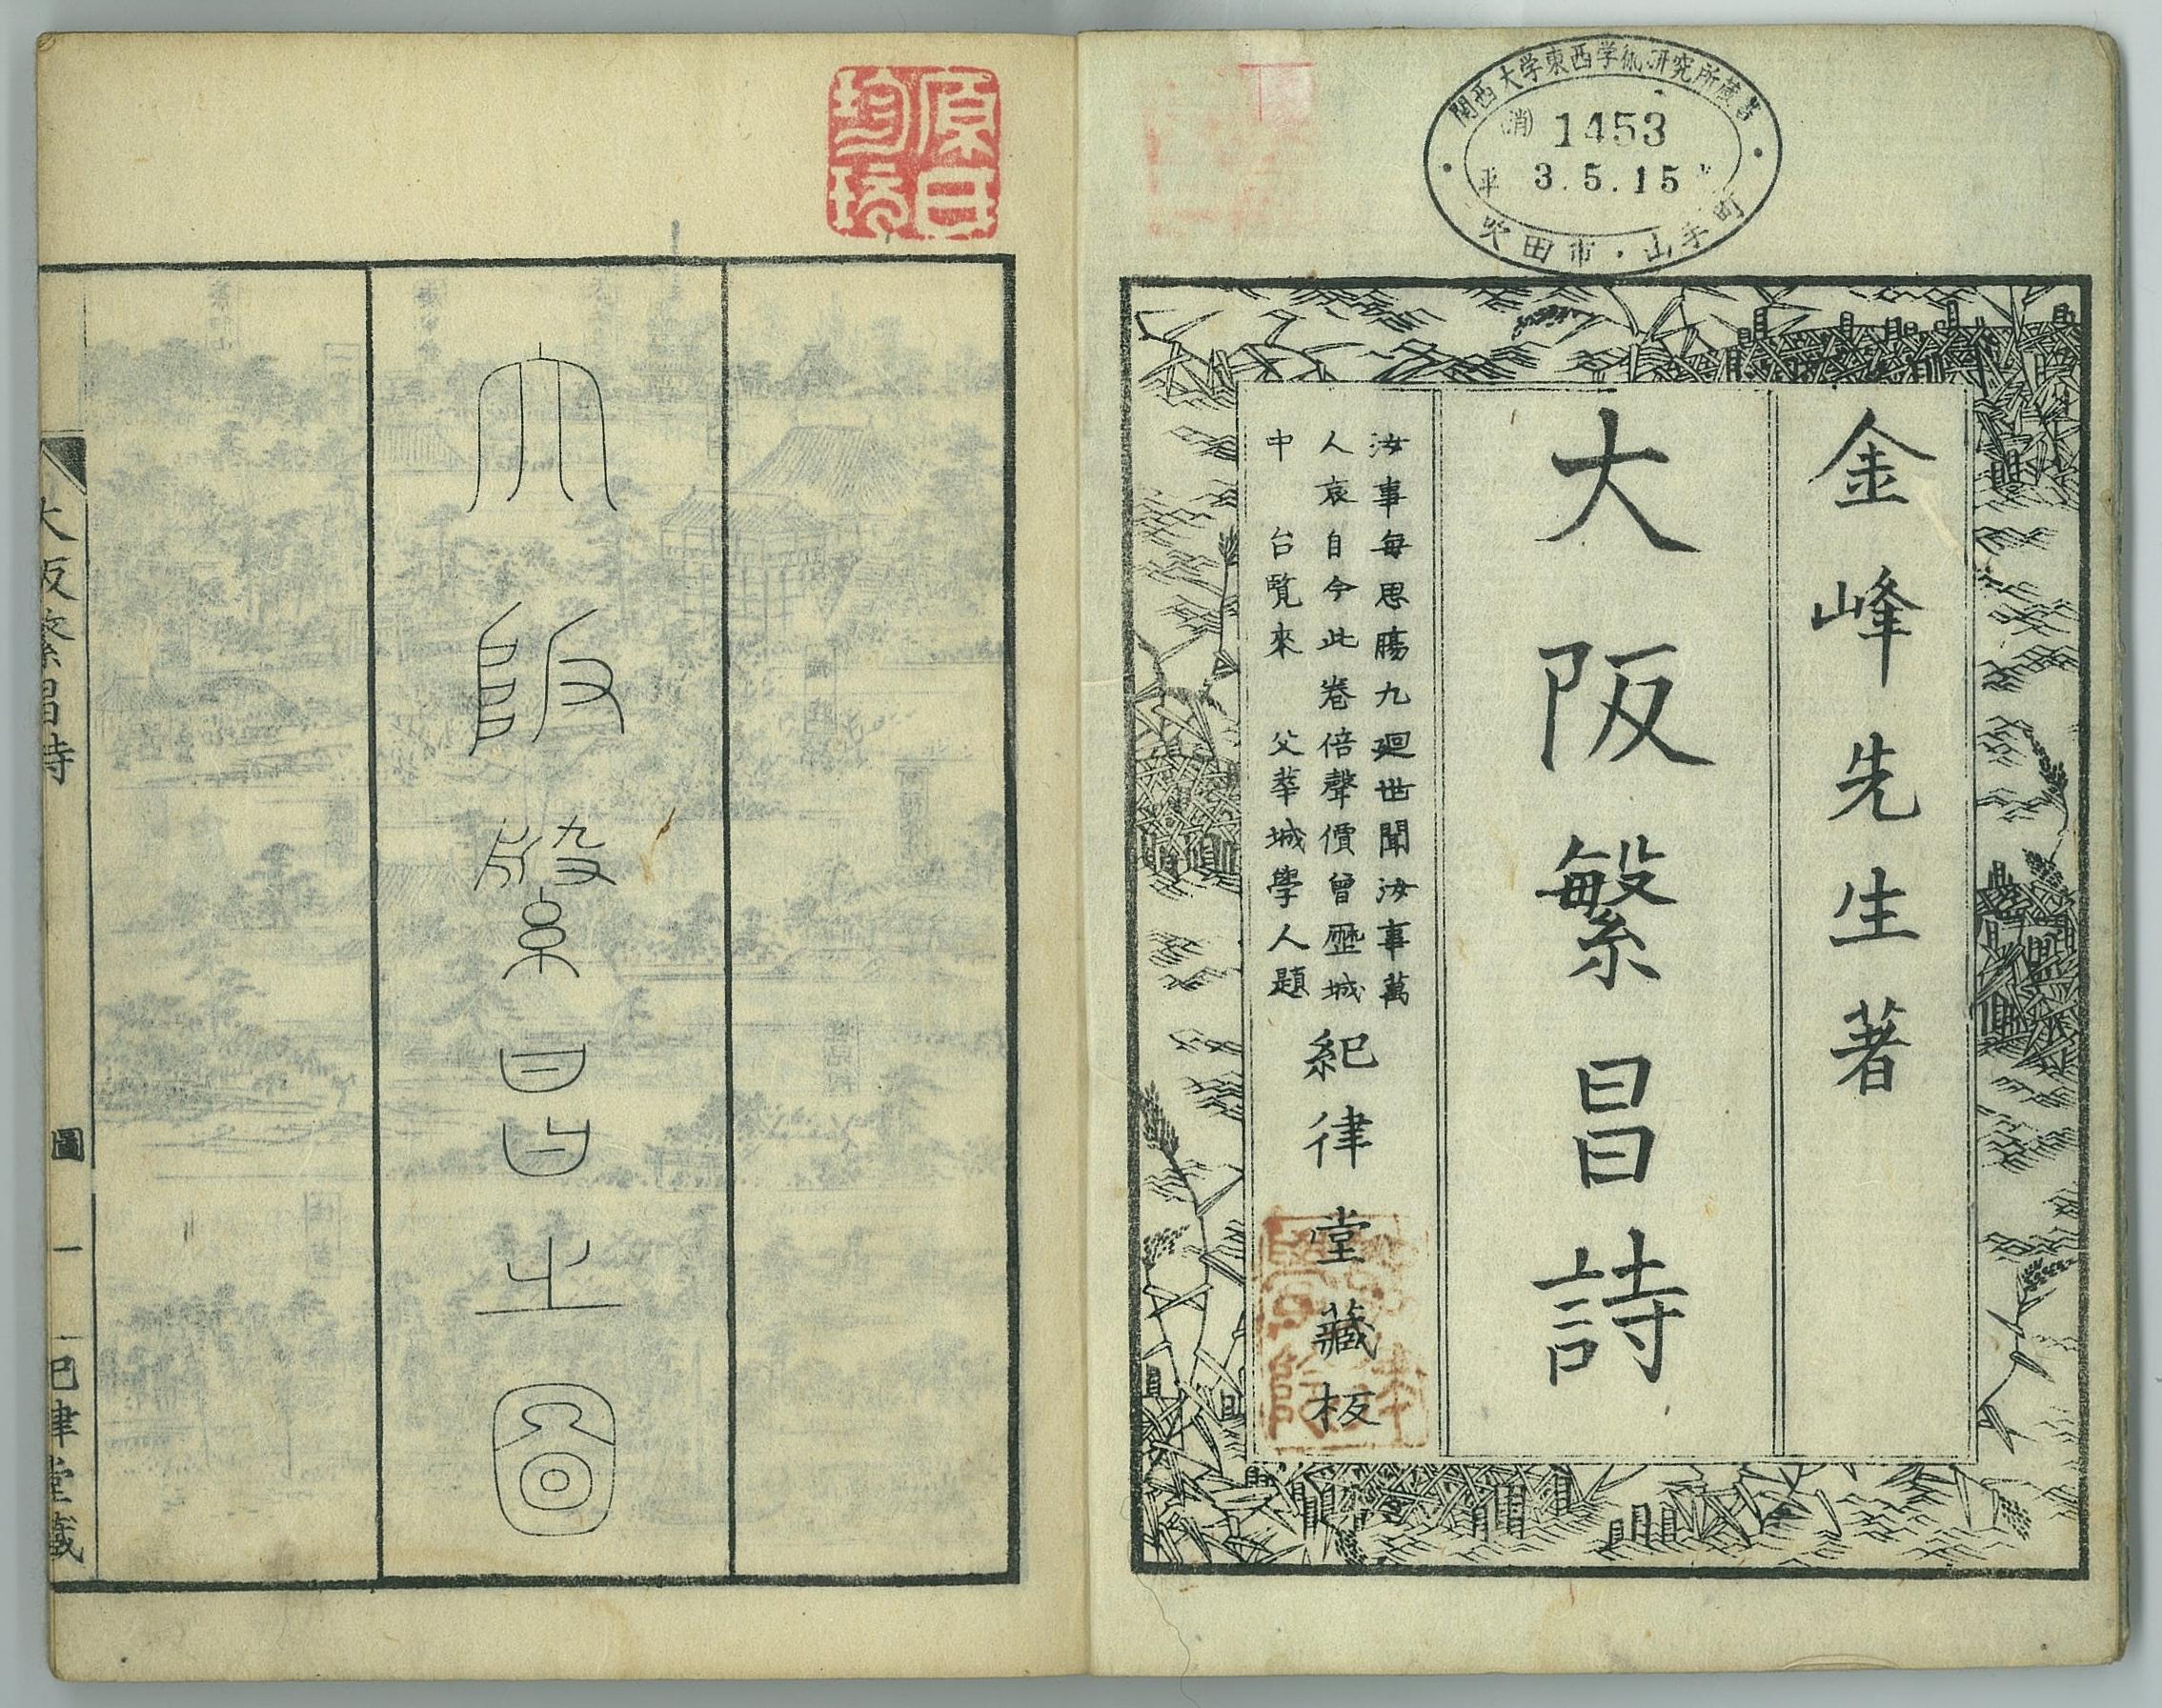 関西大学東西学術研究所蔵書
(消) 1453
平 3.5.15
吹田市・山手町
金峰先生著
大阪繁昌詩
汝事每思腸九廻世聞汝事萬
人哀自今此卷倍聲價曾歷城
中 台覽來 父華城學人題
紀律堂藏板
大阪繁昌之圖
大阪繁昌詩
圖
一
紀律堂藏